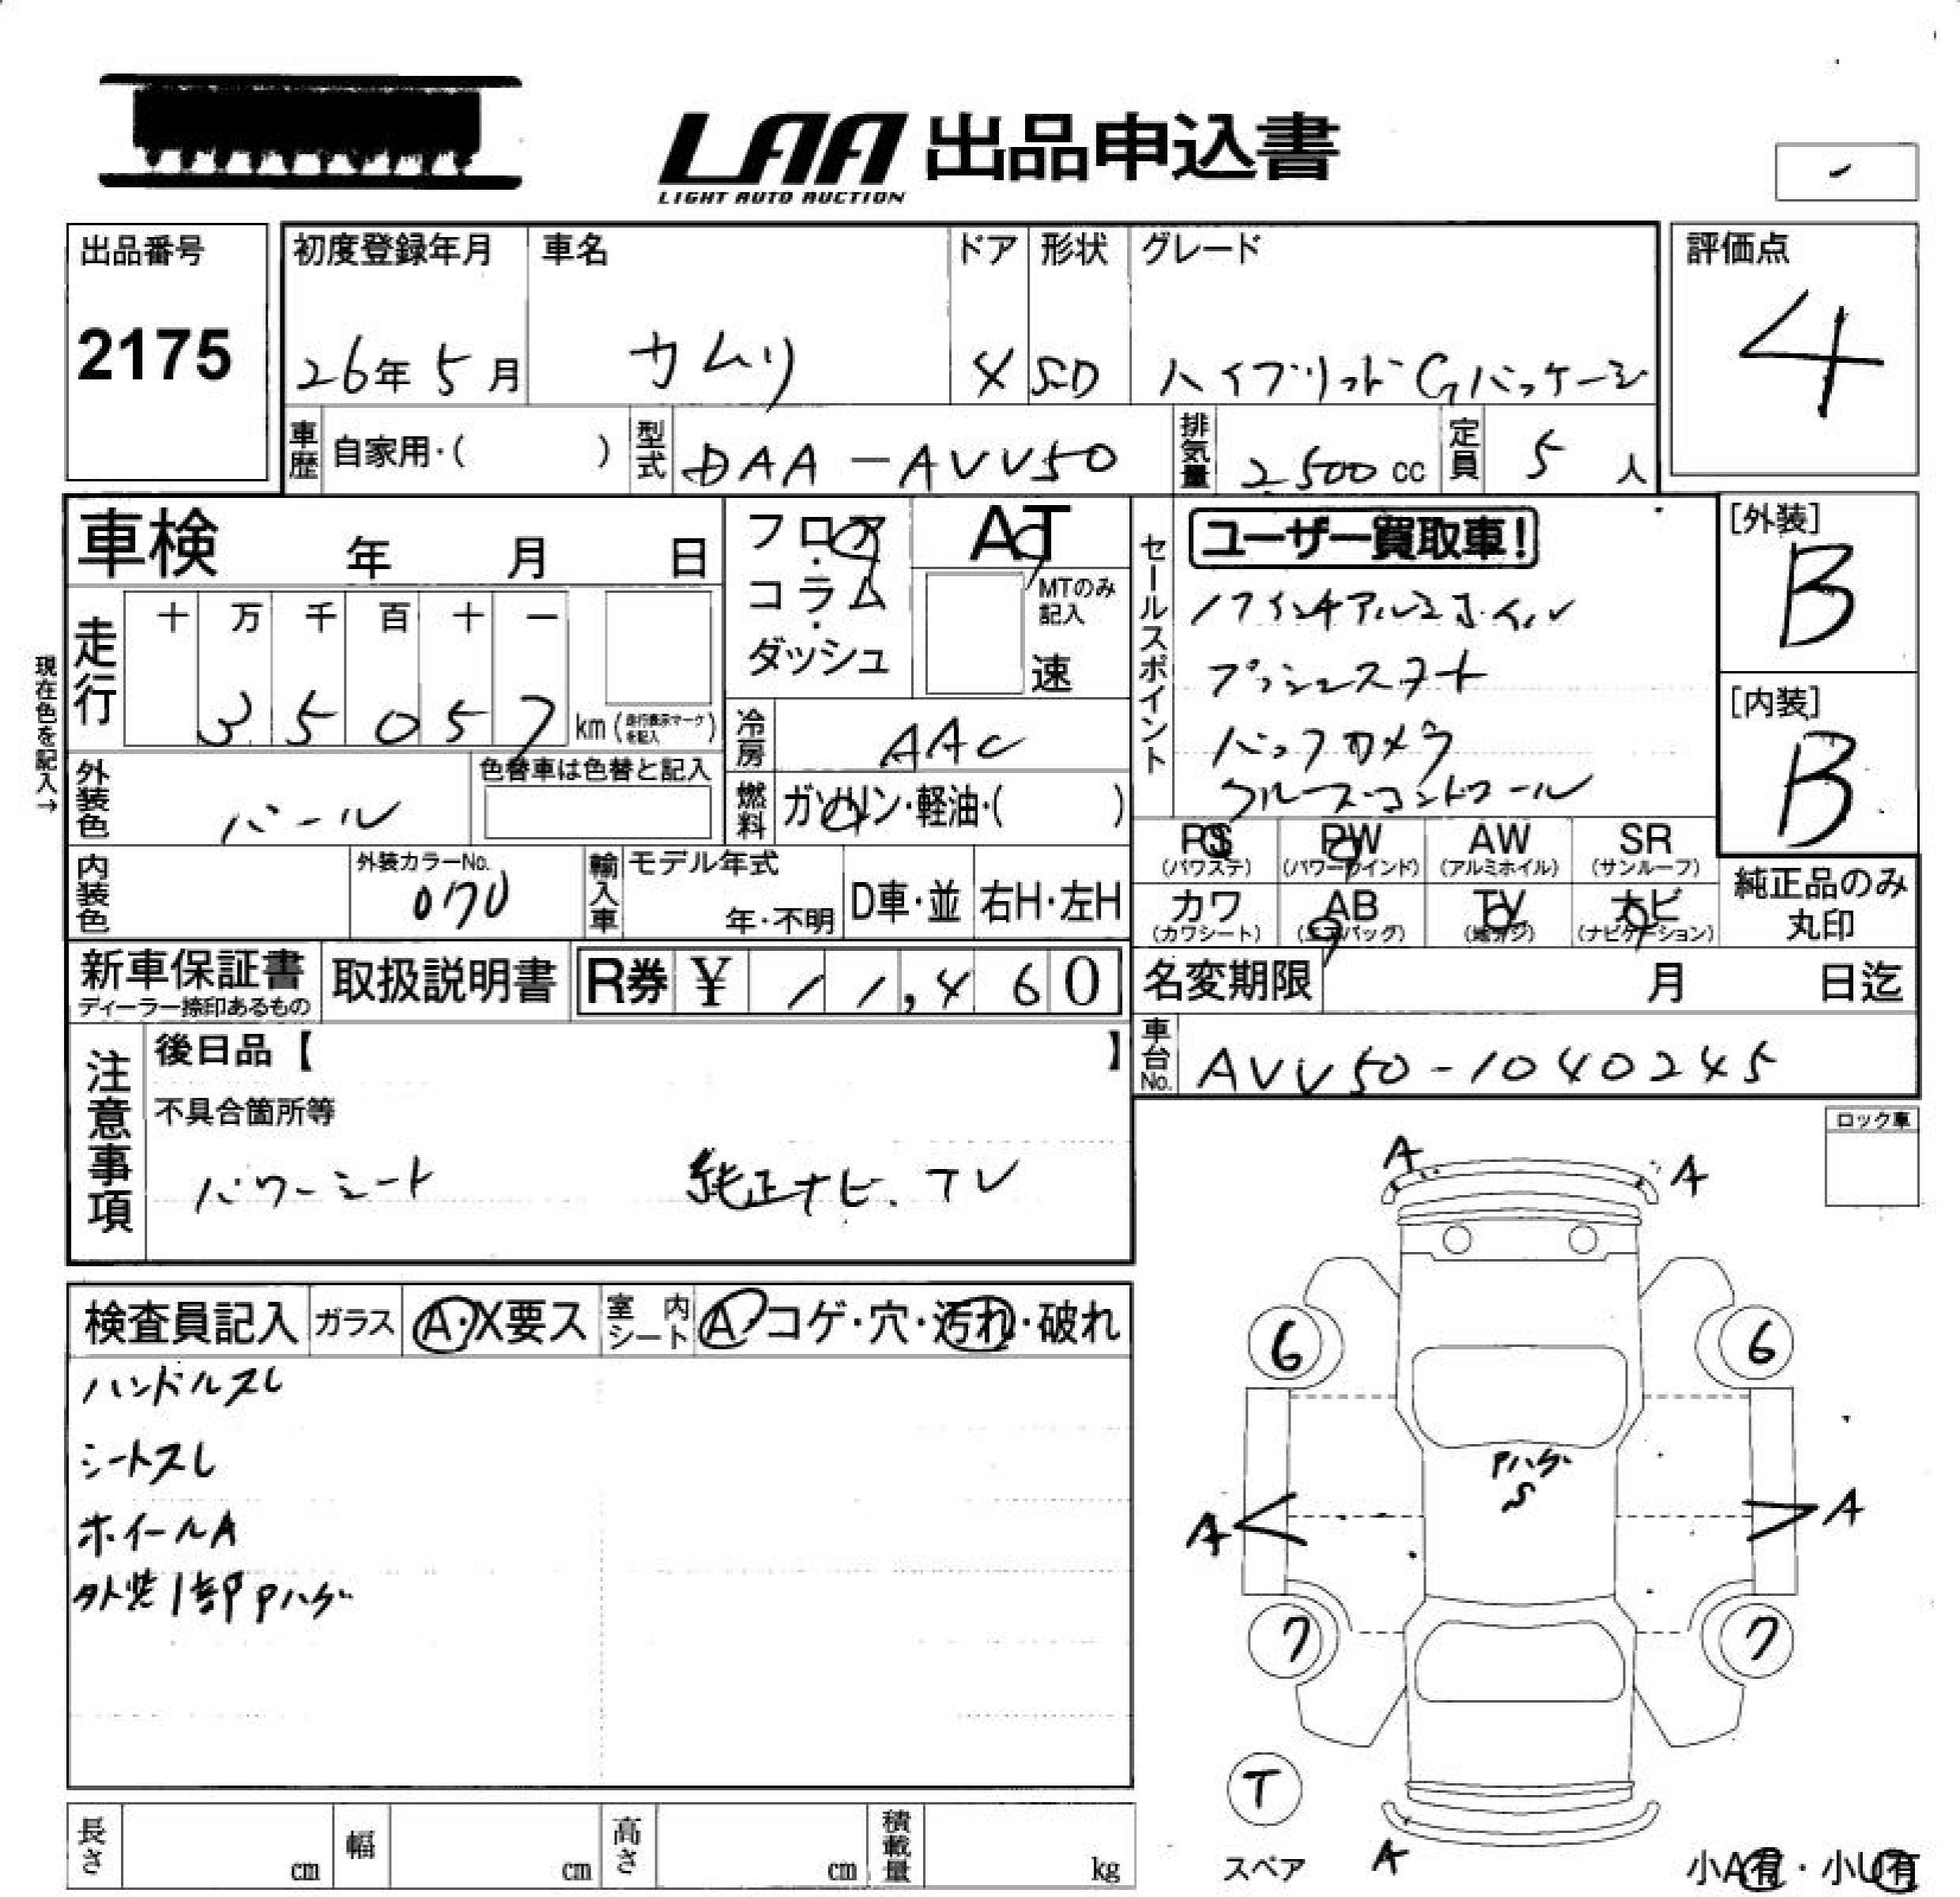 LAA 出品申込書
LIGHT AUTO AUCTION
出品番号
2175
初度登録年月
26年5月
車名
カムリ
ドア
4
形状
SD
グレード
ハイブリッドGパッケージ
評価点
4
車歴 自家用・( )
型式 DAA-AVV50
排気量 2500 cc
定員 5 人
車検 年 月 日
現在色を記入→
走行 十 万 千 百 十 一
35057 km (走行表示マークを記入)
フロア・コラム・ダッシュ
AT
MTのみ記入
速
冷房 AAC
燃料 ガソリン・軽油・( )
外装色 パール
色替車は色替と記入
内装色
外装カラーNo.
070
輸入車 モデル年式
年・不明
D車・並
右H・左H
セールスポイント
ユーザー買取車!
17インチアルミホイル
プッシュスタート
バックカメラ
クルーズコントロール
[外装]
B
[内装]
B
PS (パワステ)
PW (パワーウインド)
AW (アルミホイル)
SR (サンルーフ)
カワ (カワシート)
AB (エアバッグ)
TV (地デジ)
ナビ (ナビゲーション)
純正品のみ丸印
新車保証書
ディーラー捺印あるもの
取扱説明書
R券 ¥ 11,460
名変期限 月 日迄
車台No. AVV50-1040245
注意事項
後日品【 】
不具合箇所等
パワーシート 純正ナビ.TV
ロック車
検査員記入 ガラス A・X要ス 室内シート A コゲ・穴・汚れ・破れ
ハンドルスレ
シートスレ
ホイールA
外装1部Pハゲ
A
A
6
6
Pハゲ
S
A
A
7
7
T
スペア
A
小A有・小U有
長さ cm
幅 cm
高さ cm
積載量 kg